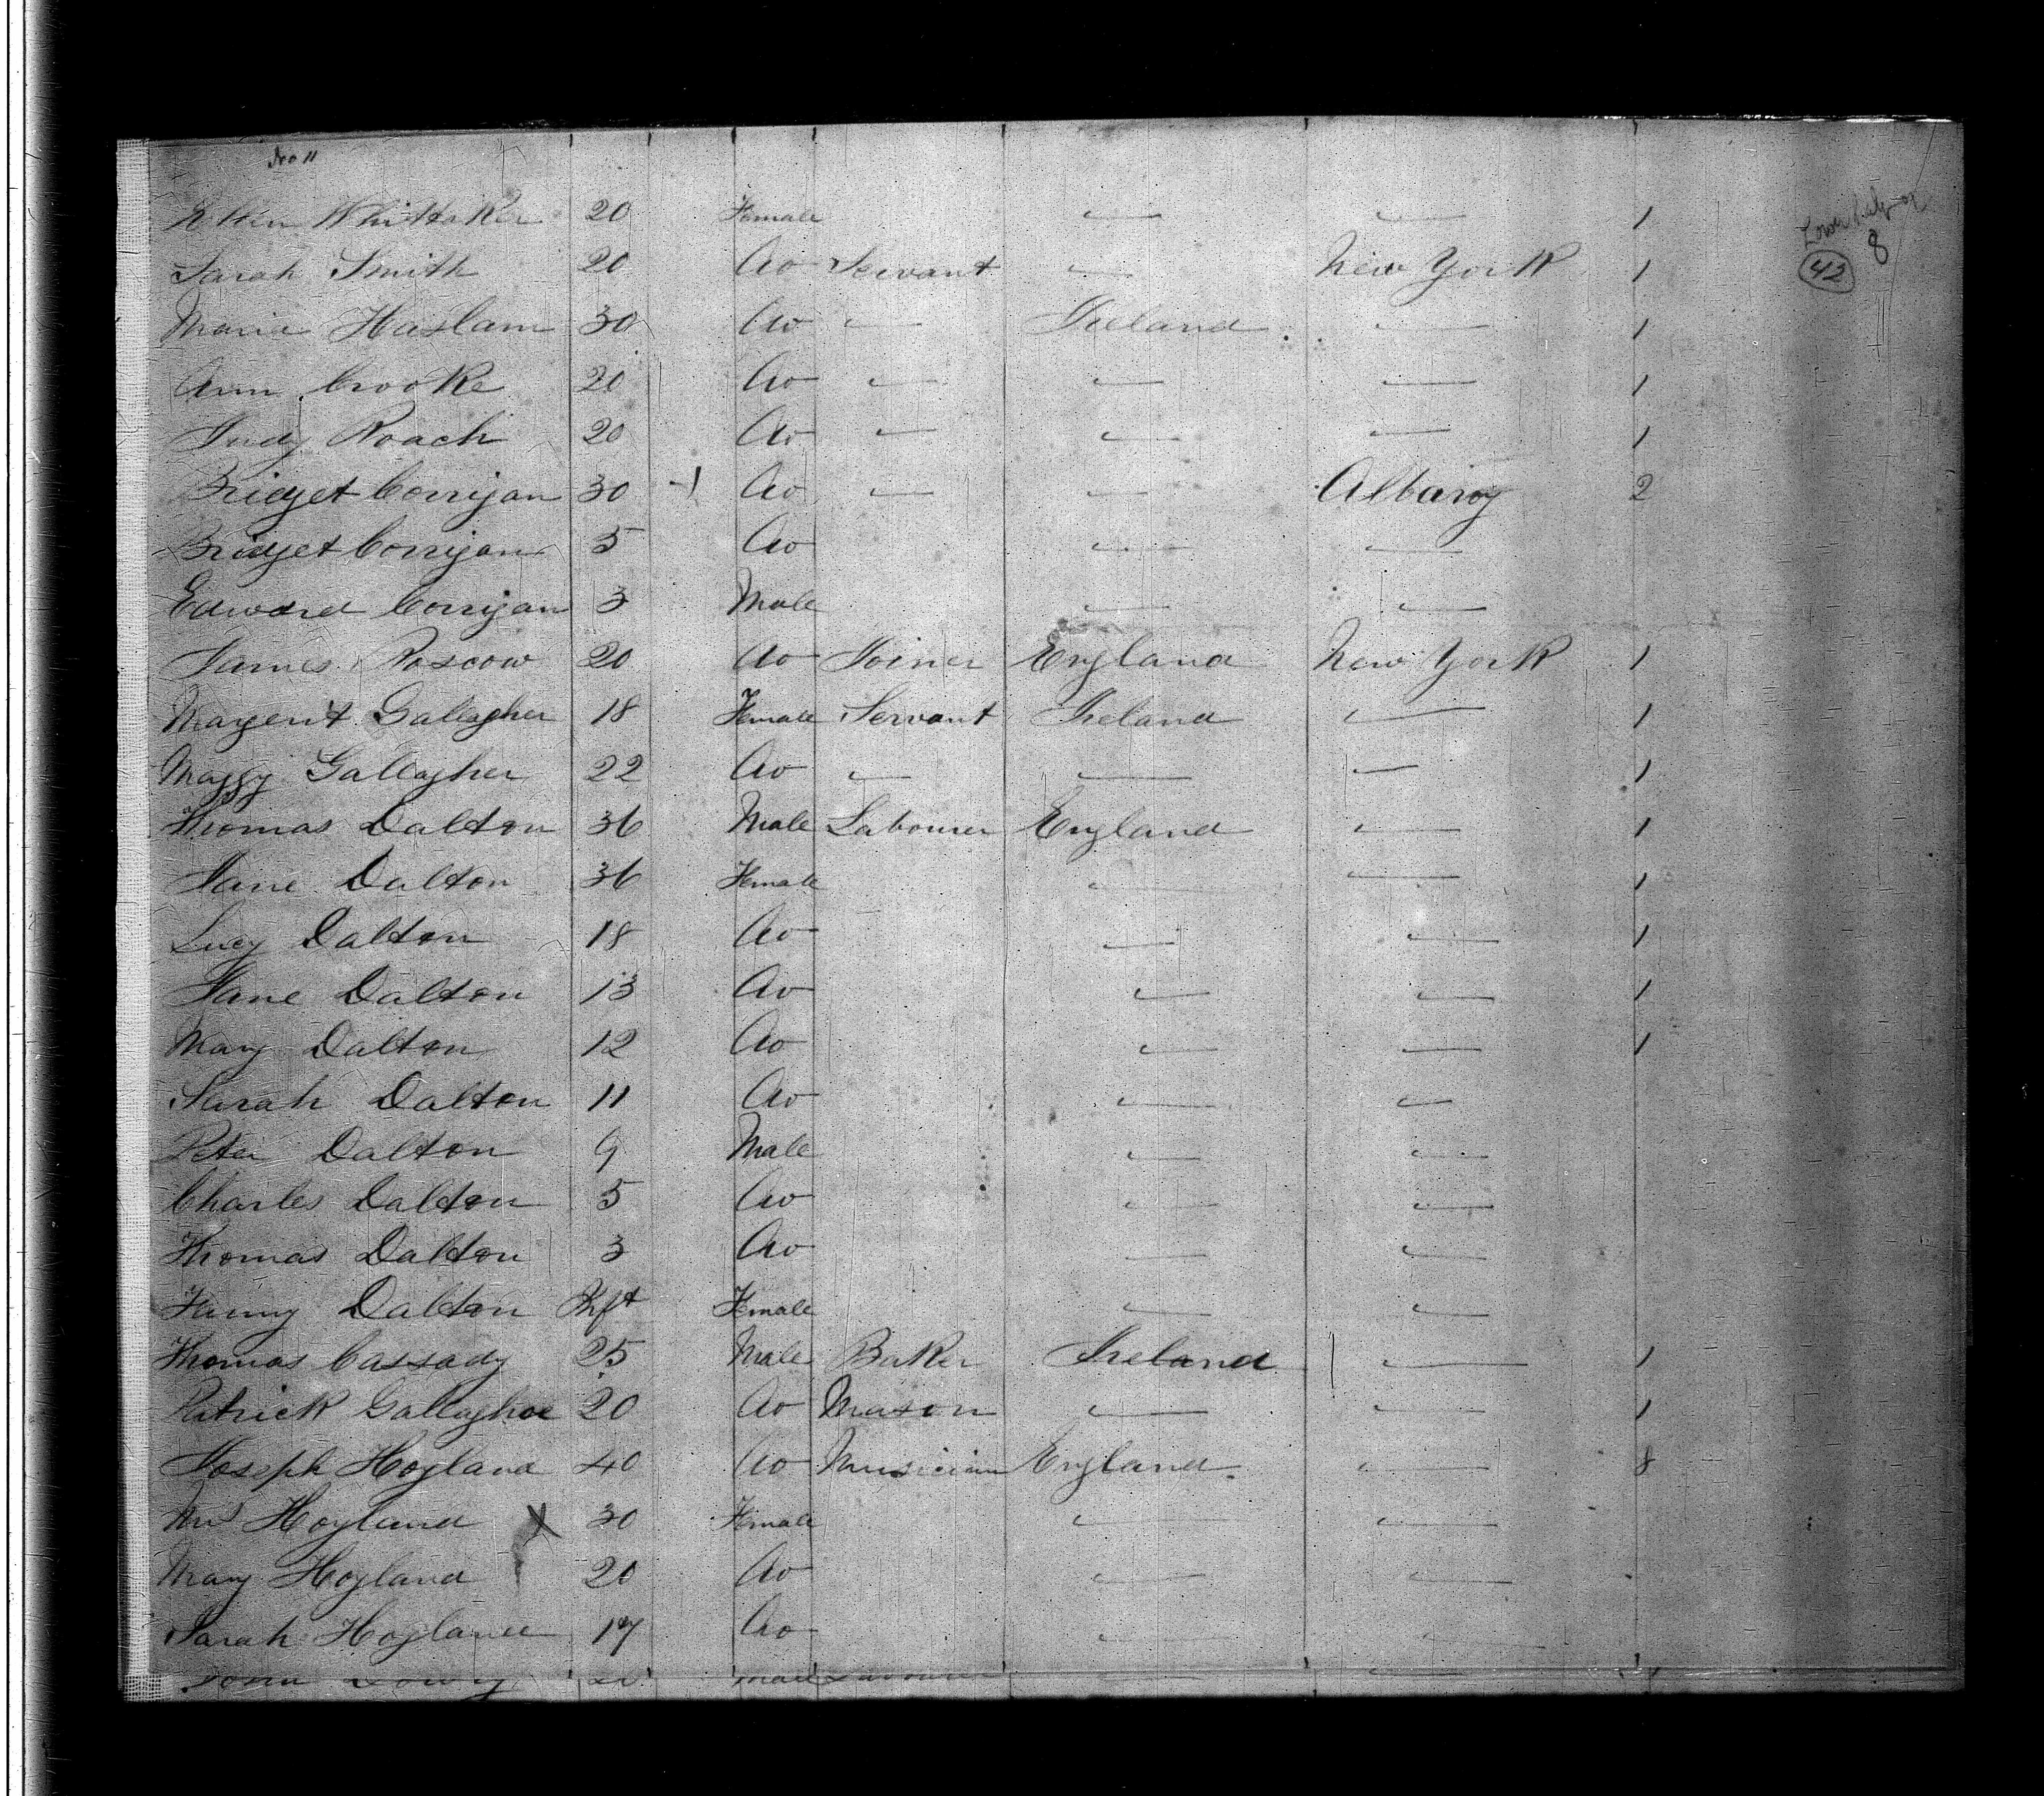 No 11
Ellen Whittaker 20 Female — — 1
Sarah Smith 20 Do Servant — New York 1
Maria Haslam 30 Do — Ireland — 1
Ann Crooke 20 Do — — — 1
Judy Roach 20 Do — — — 1
Bridget Corrigan 30 Do — — Albany 2
Bridget Corrigan 5 Do — —
Edward Corrigan 3 Male — —
James Roscow 20 Do Joiner England New York 1
Margerit Gallagher 18 Female Servant Ireland — 1
Maggy Gallagher 22 Do — — — 1
Thomas Dalton 36 Male Labourer England — 1
Jane Dalton 36 Female — — 1
Lucy Dalton 18 Do — — 1
Jane Dalton 13 Do — — 1
Mary Dalton 12 Do — — 1
Sarah Dalton 11 Do — —
Peter Dalton 9 Male — —
Charles Dalton 5 Do — —
Thomas Dalton 3 Do — —
Fanny Dalton Inft Female — —
Thomas Cassady 25 Male Baker Ireland — 1
Patrick Gallagher 20 Do Mason — — 1
Joseph Hoyland 40 Do Musician England — 8
Mrs Hoyland X 30 Female — —
Mary Hoyland 20 Do — —
Sarah Hoyland 17 Do — —
John Male Labourer — —
8
42